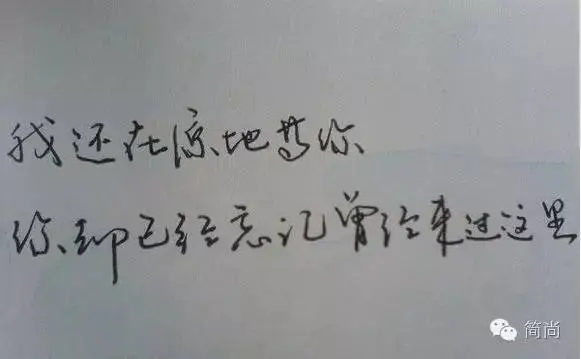 我还在原地等你
你却已经忘记曾经来过这里
简尚